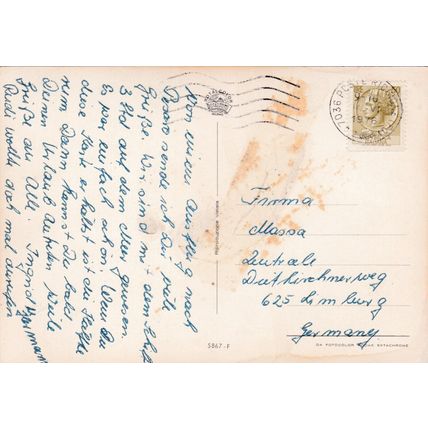 Von einem Ausflug nach
Pesaro sende ich Dir viele
Grüße. Wir sind mit dem Schiff
3 Std auf dem Meer gewesen.
Es war einfach schön. Wenn Du
diese Karte erhältst ist die Hälfte
rum. Dann kannst Du bald
Deinen Urlaub antreten. Viele
Grüße an Alle. Ingrid
Rudi wollte doch mal
Firma
Massa
Zentrale
Dietkirchnerweg
625 Limburg
Germany
Riproduzione vietata
5867-F
DA FOTOCOLOR KODAK EKTACHROME